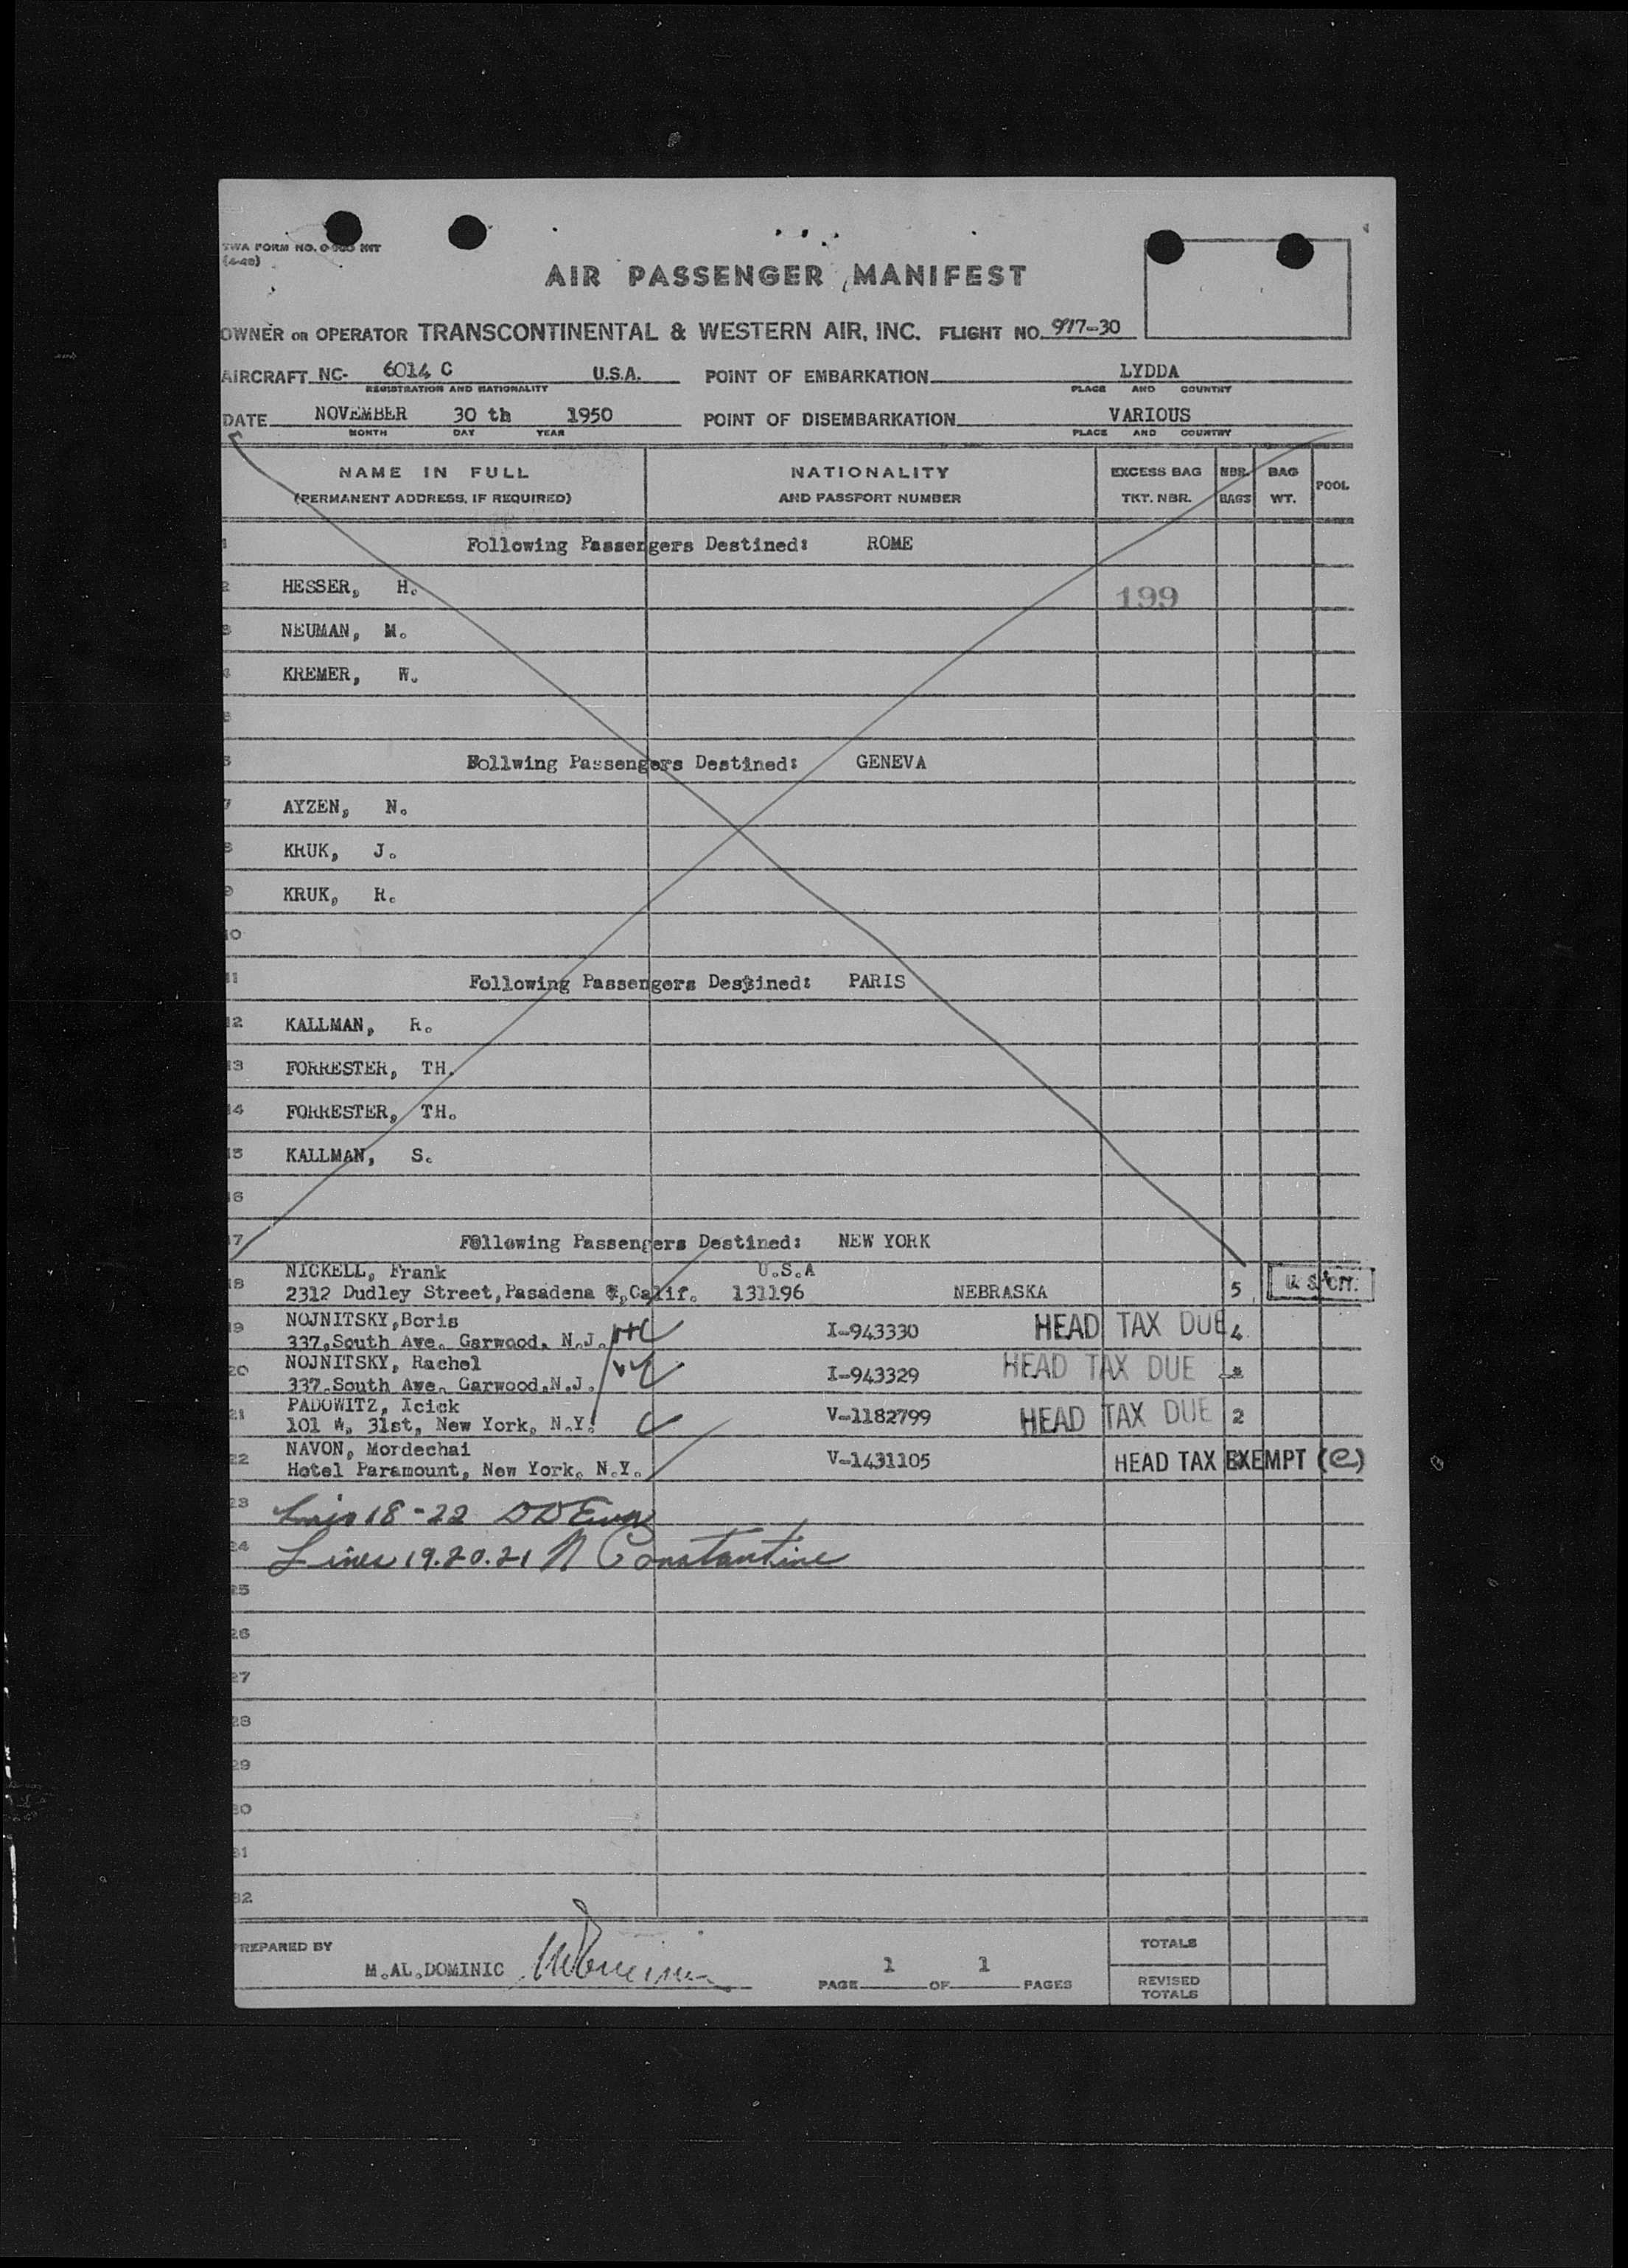 TWA FORM NO.
AIR PASSENGER MANIFEST
OWNER OR OPERATOR TRANSCONTINENTAL & WESTERN AIR, INC. FLIGHT NO. 977-30
AIRCRAFT NC- 6014 C U.S.A. POINT OF EMBARKATION LYDDA
REGISTRATION AND NATIONALITY PLACE AND COUNTRY
DATE NOVEMBER 30 th 1950 POINT OF DISEMBARKATION VARIOUS
MONTH DAY YEAR PLACE AND COUNTRY
NAME IN FULL NATIONALITY EXCESS BAG NBR. BAG POOL
(PERMANENT ADDRESS, IF REQUIRED) AND PASSPORT NUMBER TKT. NBR. BAGS WT.
1 Following Passengers Destined: ROME
2 HESSER, H. 199
3 NEUMAN, M.
4 KREMER, W.
5
6 Follwing Passengers Destined: GENEVA
7 AYZEN, N.
8 KRUK, J.
9 KRUK, R.
10
11 Following Passengers Destined: PARIS
12 KALLMAN, R.
13 FORRESTER, TH.
14 FORRESTER, TH.
15 KALLMAN, S.
16
17 Following Passengers Destined: NEW YORK
NICKELL, Frank U.S.A
18 2312 Dudley Street, Pasadena Calif. 131196 NEBRASKA 5 U. S. CIT.
NOJNITSKY, Boris
19 337, South Ave. Garwood, N.J. I-943330 HEAD TAX DUE 4
NOJNITSKY, Rachel
20 337 South Ave. Garwood, N.J. I-943329 HEAD TAX DUE
PADOWITZ, Icick
21 101 W. 31st, New York, N.Y. V-1182799 HEAD TAX DUE 2
NAVON, Mordechai
22 Hotel Paramount, New York, N.Y. V-1431105 HEAD TAX EXEMPT (C)
23 18-22
24 Lines 19.20.21 N Constantine
25
26
27
28
29
30
31
32
PREPARED BY M.AL.DOMINIC PAGE 1 OF 1 PAGES TOTALS
REVISED TOTALS